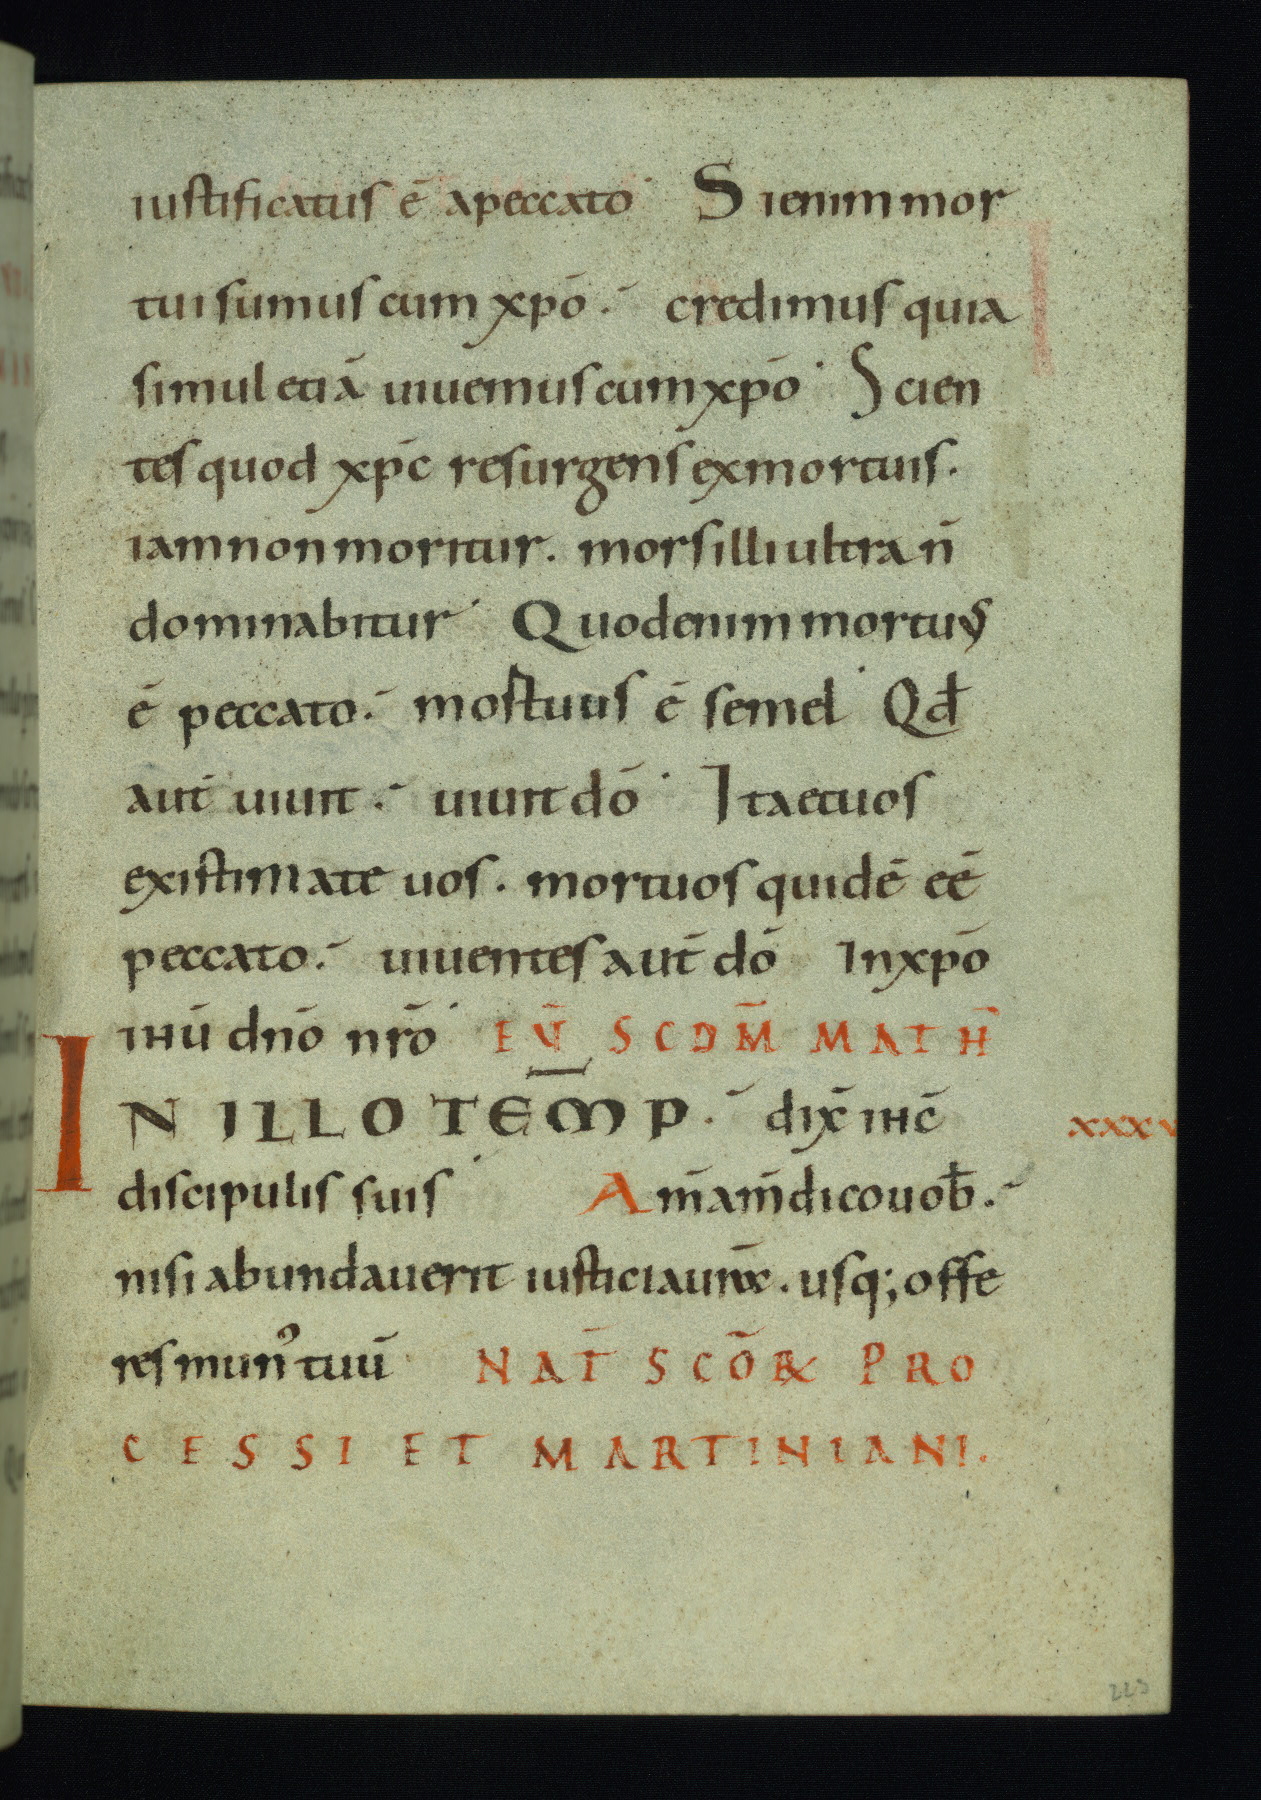 iustificatus ē apeccato. Sienim mor
tui sumus cum xpō. credimus quia
simul etiā uiuemus cum xpō. Scien
tes quod xpc̄ resurgens exmortuis.
iam non moritur. mors illi ultra n̄
dominabitur. Quodenim mortuus
ē peccato. mostuus ē semel. Qđ
aut̄ uiuit. uiuit dō. Itaetuos
existimate uos. mortuos quidē eē
peccato. uiuentes aut̄ dō Inxpō
ihū dn̄o nr̄o. EV̄ SCDM̄ MATH̄
IN ILLO TEM̄P. dix̄ ihc̄
xxxv
discipulis suis. Am̄am̄dicouob̄.
nisi abundauerit iusticiaur̄ꝝ. usq; offe
res mun' tuū NAT̄ SCŌꝜ PRO
CESSI ET MARTINIANI.
223